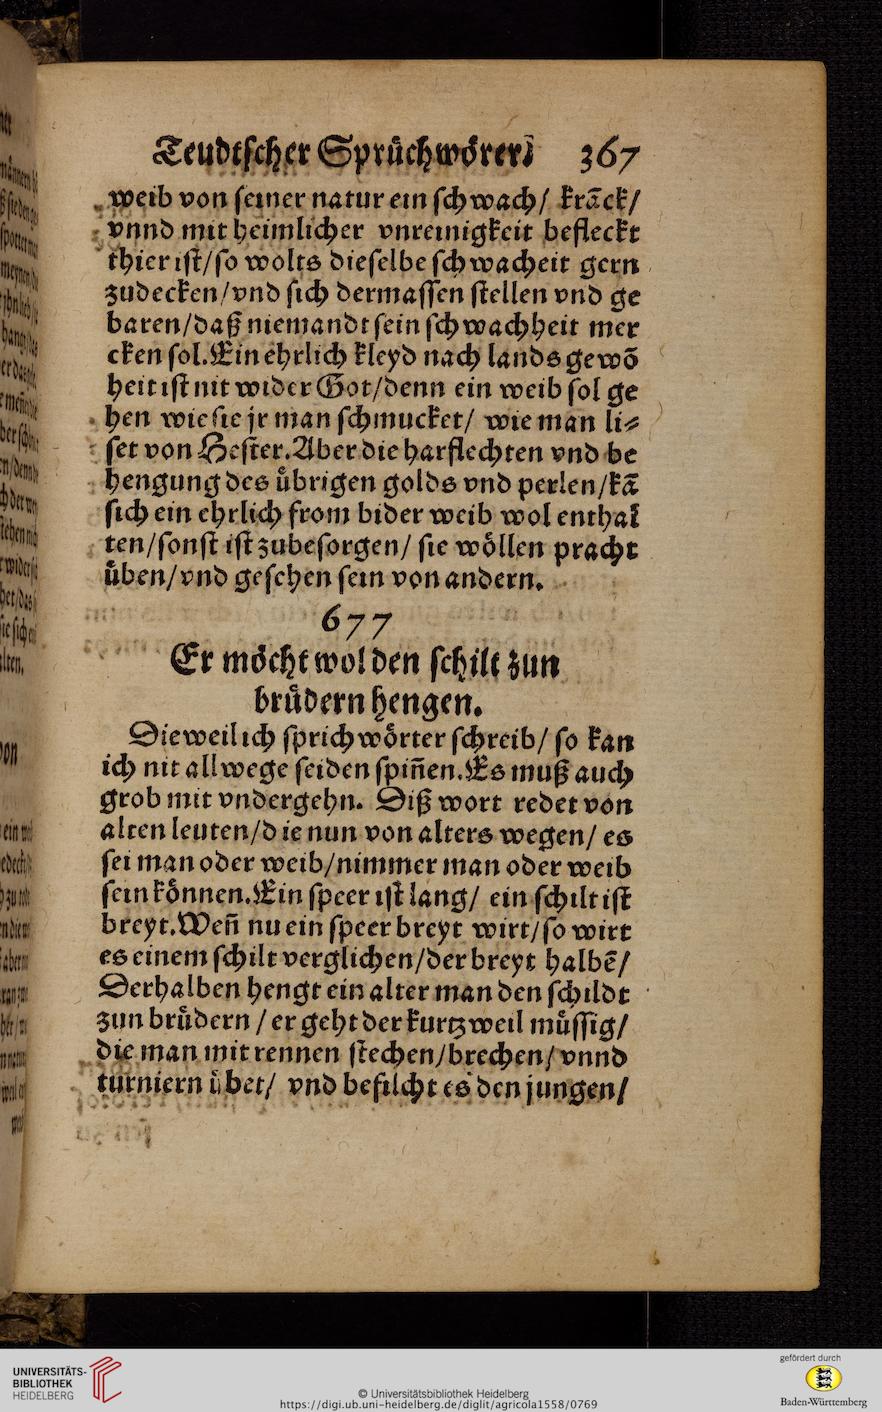 Teudtscher Sprüchwörter 367
weib von seiner natur ein schwach/ krãck/
vnnd mit heimlicher vnreinigkeit befleckt
thier ist/so wolts dieselbe schwacheit gern
zudecken/vnd sich dermassen stellen vnd ge
baren/daß niemandt sein schwachheit mer
cken sol.Ein ehrlich kleyd nach lands gewõ
heit ist nit wider Got/denn ein weib sol ge
hen wie sie jr man schmucket/ wie man li⸗
set von Hester.Aber die harflechten vnd be
hengung des uͤbrigen golds vnd perlen/kã
sich ein ehrlich from bider weib wol enthal
ten/sonst ist zubesorgen/ sie woͤllen pracht
uͤben/vnd gesehen sein von andern.
677
Er moͤcht wol den schilt zun
bruͤdern hengen.
Dieweil ich sprichwoͤrter schreib/ so kan
ich nit allwege seiden spiñen.Es muß auch
grob mit vndergehn. Diß wort redet von
alten leuten/die nun von alters wegen/ es
sei man oder weib/nimmer man oder weib
sein koͤnnen.Ein speer ist lang/ ein schilt ist
breyt.Weñ nu ein speer breyt wirt/so wirt
es einem schilt verglichen/der breyt halbẽ/
Derhalben hengt ein alter man den schildt
zun bruͤdern / er geht der kurtzweil muͤssig/
die man mit rennen stechen/brechen/vnnd
turniern uͤbet/ vnd befilcht es den jungen/
UNIVERSITÄTS-
BIBLIOTHEK
HEIDELBERG
© Universitätsbibliothek Heidelberg
https://digi.ub.uni-heidelberg.de/diglit/agricola1558/0769
gefördert durch
Baden-Württemberg